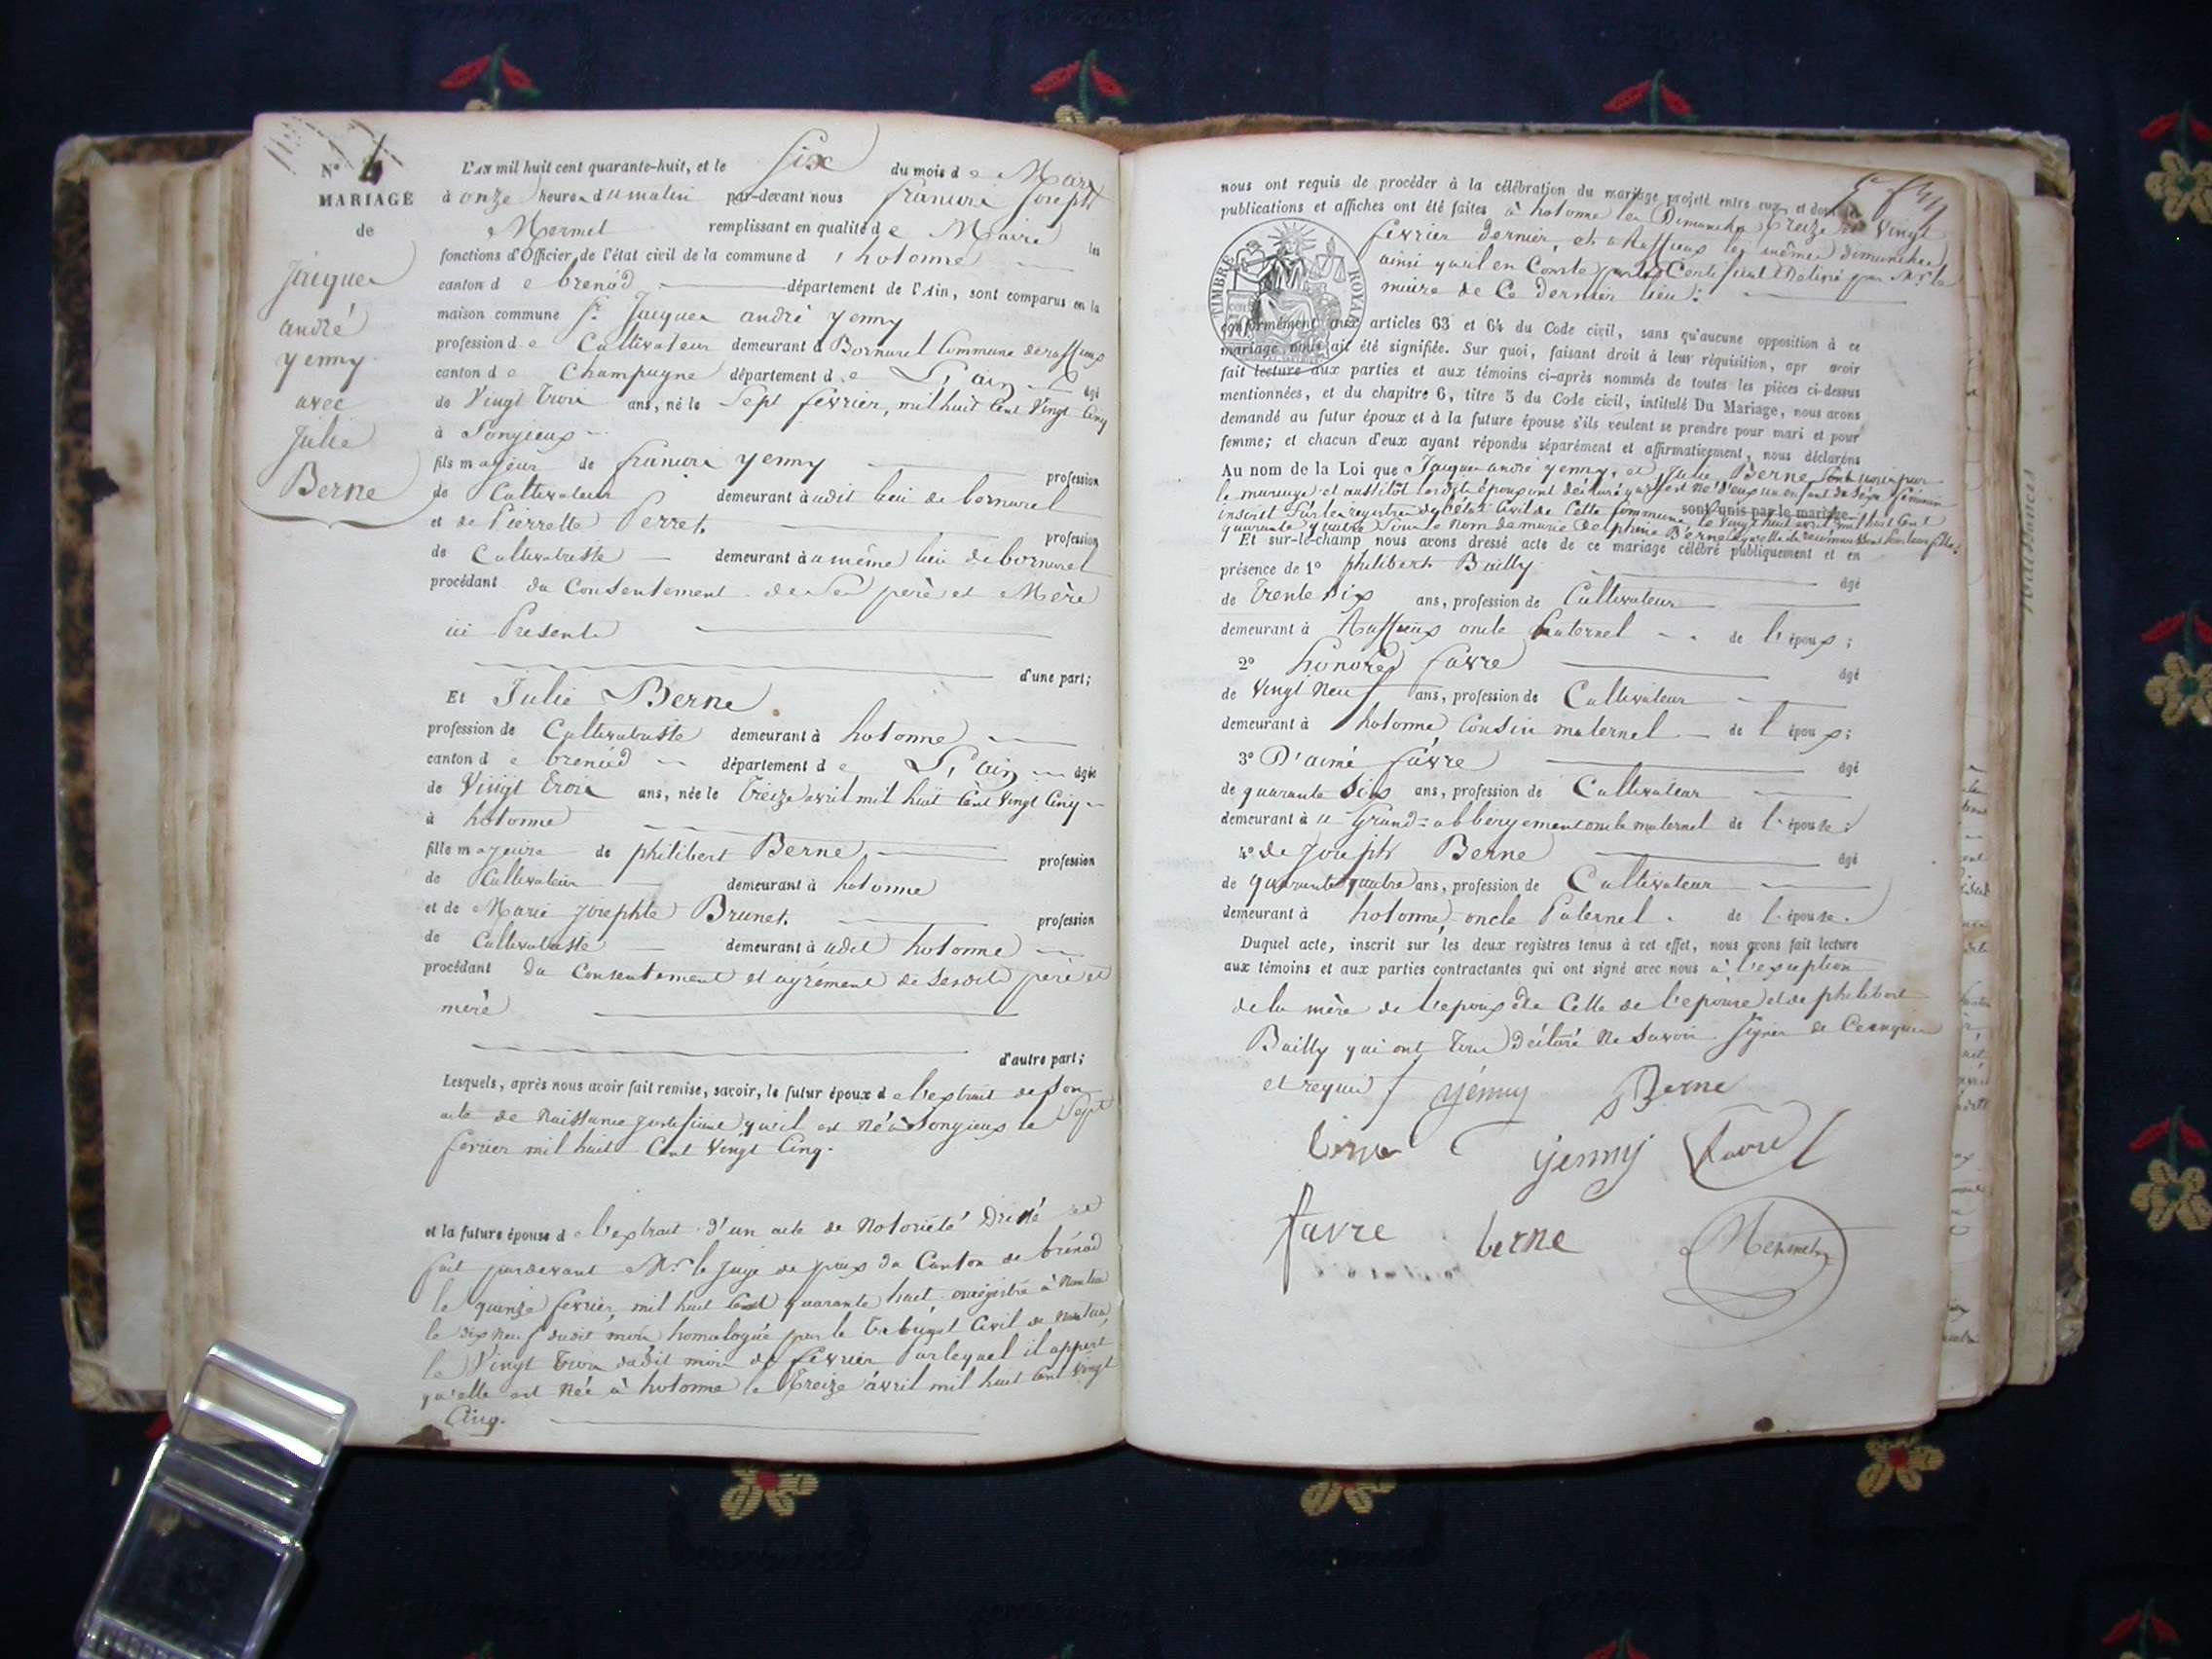 N° 4
MARIAGE
de
Jacques
andré
yenny
avec
Julie
Berne
L'AN mil huit cent quarante-huit, et le Six du mois de Mars
à onze heures du matin par-devant nous francois Joseph
Mermet remplissant en qualité de Maire les
fonctions d'Officier de l'état civil de la commune d'hotonne
canton de brenod département de l'Ain, sont comparus en la
maison commune Sr Jacques andré yenny
profession de Cultivateur demeurant à Bornarel Commune de ruffieux
canton de Champagne département de L'ain âgé
de Vingt trois ans, né le Sept fevrier, mil huit Cent Vingt Cinq
à Songieux
fils majeur de francois yenny profession
de Cultivateur demeurant audit lieu de bornarel
et de Pierrette Perret, profession
de Cultivatrice demeurant au même lieu de bornarel
procédant du Consentement de Ses père et Mère
ici Presents
d'une part;
ET Julie Berne
profession de Cultivatrice demeurant à hotonne
canton de brenod département de L'ain âgée
de Vingt trois ans, née le treize avril mil huit Cent Vingt Cinq
à hotonne
fille majeure de philibert Berne profession
de Cultivateur demeurant à hotonne
et de Marie Josephte Brunet, profession
de Cultivatrice demeurant audit hotonne
procédant du Consentement et agrément de Sesdits père et
mère
d'autre part;
Lesquels, après nous avoir fait remise, savoir, le futur époux de l'extrait de Son
acte de Naissance justifiant qu'il est Né à Songieux le Sept
fevrier mil huit Cent Vingt Cinq.
et la future épouse de l'extrait d'un acte de Notorieté Dressé et
fait pardevant Mr le Juge de paix du Canton de brénod
le quinze fevrier, mil huit Cent quarante huit enregistré à Nantua
le dix Neuf dudit mois homologué par le tribunal Civil de Nantua,
le Vingt trois dudit mois de fevrier par lequel il appert
qu'elle est Née à hotonne le treize avril mil huit Cent Vingt
Cinq.
nous ont requis de procéder à la célébration du mariage projeté entre eux, et dont les
publications et affiches ont été faites à hotonne les Dimanches treize et Vingt
fevrier dernier, et à Ruffieux les mêmes dimanches,
ainsi qu'il en Conste par le Certificat Delivré par Mr le
maire de Ce dernier lieu:
TIMBRE ROYAL
conformément aux articles 63 et 64 du Code civil, sans qu'aucune opposition à ce
mariage nous ait été signifiée. Sur quoi, faisant droit à leur réquisition, apr avoir
fait lecture aux parties et aux témoins ci-après nommés de toutes les pièces ci-dessus
mentionnées, et du chapitre 6, titre 5 du Code civil, intitulé Du Mariage, nous avons
demandé au futur époux et à la future épouse s'ils veulent se prendre pour mari et pour
femme; et chacun d'eux ayant répondu séparément et affirmativement, nous déclarons
Au nom de la Loi que Jacques andré yenny, et Julie Berne Sont unis par
le mariage et aussitôt lesdits époux ont déclaré qu'il est Né d'eux un enfant de Séxe féminin
inscrit Sur les registres de l'état Civil de Cette Commune, le Vingt huit avril mil huit Cent
sont unis par le mariage.
quarante quatre Sous le Nom de marie Delphine Berne laquelle ils reconnaissent pour leur fille.
Et sur-le-champ nous avons dressé acte de ce mariage célébré publiquement et en
présence de 1° philibert Bailly âgé
de trente Six ans, profession de Cultivateur
demeurant à Ruffieux oncle paternel de l'époux;
2° honoré favre âgé
de Vingt Neuf ans, profession de Cultivateur
demeurant à hotonne Cousin maternel de l'époux;
3° D'aimé favre âgé
de quarante Six ans, profession de Cultivateur
demeurant à u Grand=abbergement oncle maternel de l'épouse;
4° de Joseph Berne âgé
de quarante quatre ans, profession de Cultivateur
demeurant à hotonne, oncle Paternel. de l'épouse.
Duquel acte, inscrit sur les deux registres tenus à cet effet, nous avons fait lecture
aux témoins et aux parties contractantes qui ont signé avec nous à l'exception
de la mère de l'epoux de Celle de l'epouse et de philibert
Bailly qui ont tous Déclaré Ne Savoir Signer de Ce enquis
et requis yenny Berne
berne yenny favre
favre berne Mermet